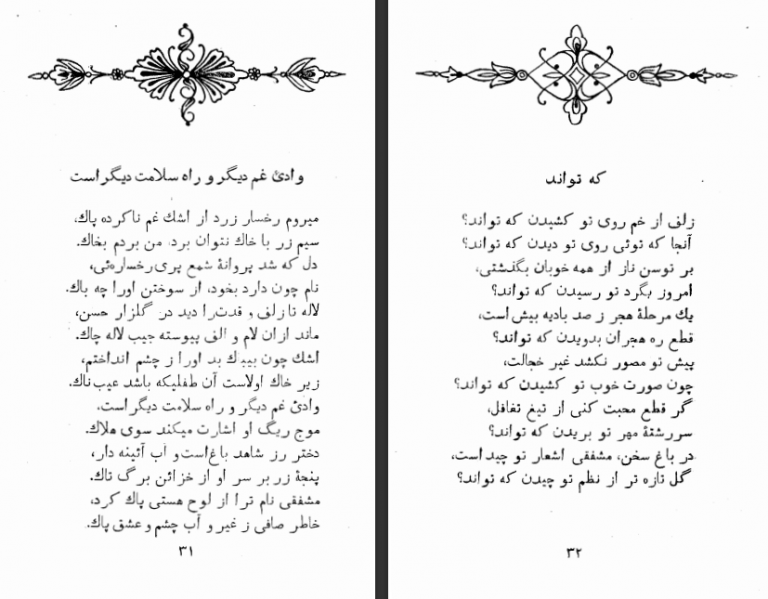 وادئ غم دیگر و راه سلامت دیگراست
میروم رخسار زرد از اشك غم ناکرده پاك،
سیم زر با خاك نتوان برد، من بردم بخاك.
دل که شد پروانۀ شمع پری رخساره‌ئی،
نام چون دارد بخود، از سوختن اورا چه باك.
لاله تا زلف و قدت را دید در گلزار حسن،
ماند ازان لام و الف پیوسته جیب لاله چاك.
اشك چون بیبك بد اورا ز چشم انداختم،
زیر خاك اولاست آن طفلیکه باشد عیب‌ناك.
وادئ غم دیگر و راه سلامت دیگراست،
موج ریگ او اشارت میکند سوی هلاك.
دختر رز شاهد باغ است و آب آئینه دار،
پنجۀ زر بر سر او از خزائن برگ تاك.
مشفقی نام ترا از لوح هستی پاك کرد،
خاطر صافی ز غیر و آب چشم و عشق پاك.
۳۱
که تواند
زلف از خم روی تو کشیدن که تواند؟
آنجا که توئی روی تو دیدن که تواند؟
بر توسن ناز از همه خوبان بگذشتی،
امروز بگرد تو رسیدن که تواند؟
یك مرحلۀ هجر ز صد بادیه بیش است،
قطع ره هجران بدویدن که تواند؟
پیش تو مصور نکشد غیر خجالت،
چون صورت خوب تو کشیدن که تواند؟
گر قطع محبت کنی از تیغ تغافل،
سررشتۀ مهر تو بریدن که تواند؟
در باغ سخن، مشفقی اشعار تو چید است،
گل تازه تر از نظم تو چیدن که تواند؟
۳۲